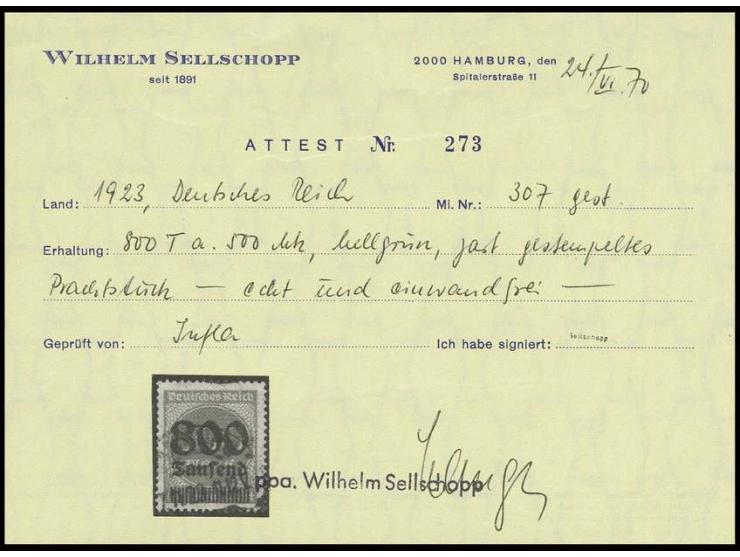 WILHELM SELLSCHOPP
seit 1891
2000 HAMBURG, den 24./VI. 70
Spitalerstraße 11
ATTEST Nr. 273
Land: 1923, Deutsches Reich Mi. Nr.: 307 gest.
Erhaltung: 800 T a. 500 Mk, hellgrün, zart gestempeltes
Prachtstück — echt und einwandfrei —
Geprüft von: Infla Ich habe signiert: Sellschopp
Deutsches Reich
800
Tausend
ppa. Wilhelm Sellschopp